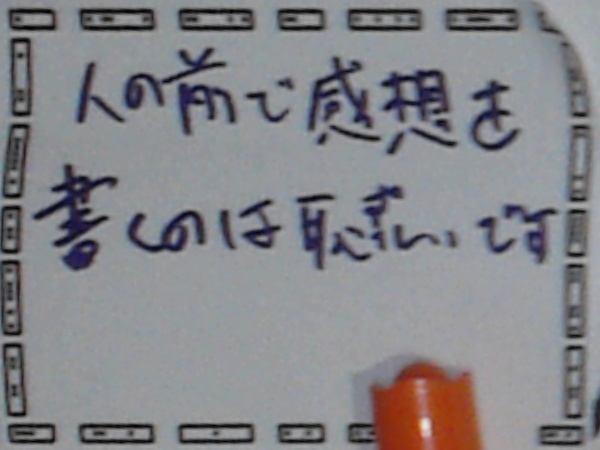 人の前で感想を
書くのは恥ずかしいです